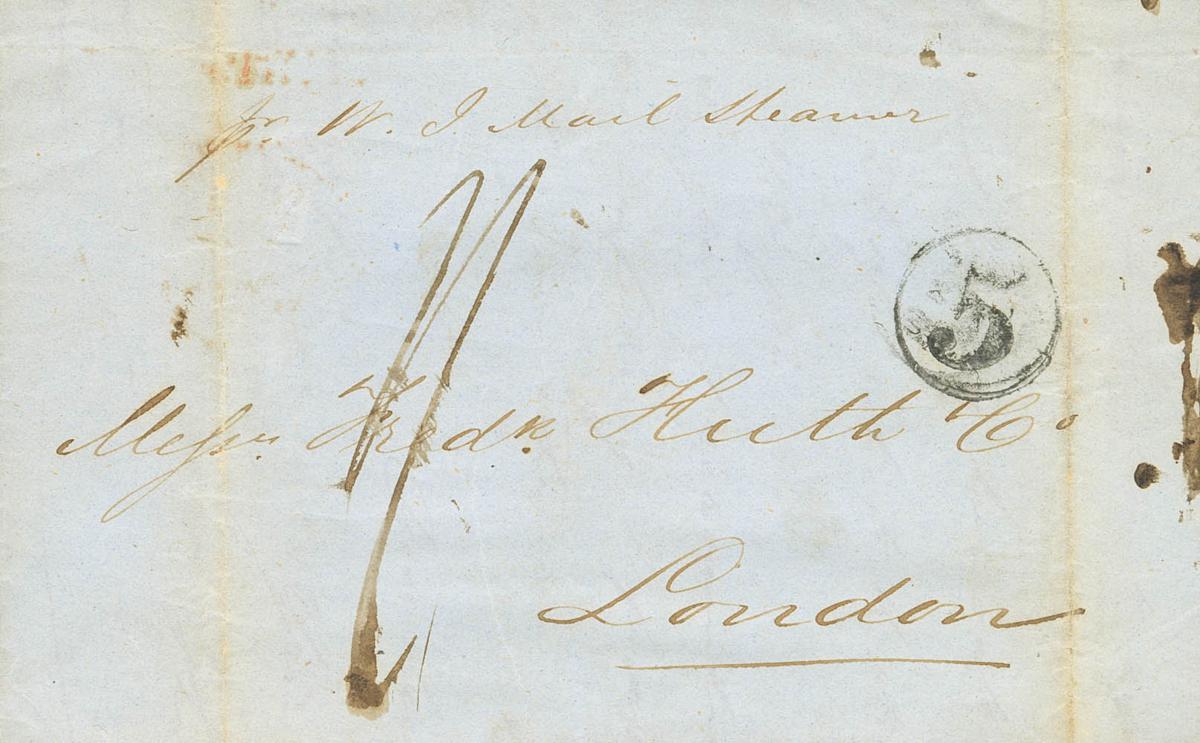 pr W. I Mail Steamer
5
Messrs. Fredk. Huth & Co
London